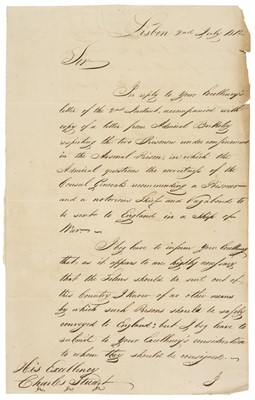 Lisbon 2nd July 1812
Sir
In reply to Your Excellency's
letter of the 2nd Instant, accompanied with
copy of a letter from Admiral Berkeley
respecting the two Prisoners under confinement
in the Arsenal Prison, in which the
Admiral questions the correctness of the
Consul General's recommending a Prisoner
and a notorious Thief and Vagabond to
be sent to England in a Ship of
War.
I beg leave to inform Your Excellency
that as it appears to me highly necessary
that the Felons should be sent out of
this Country, I know of no other means
by which such Persons should be safely
conveyed to England; but I beg leave to
submit to Your Excellency's consideration
to whom they should be consigned.
His Excellency
Charles Stuart
I